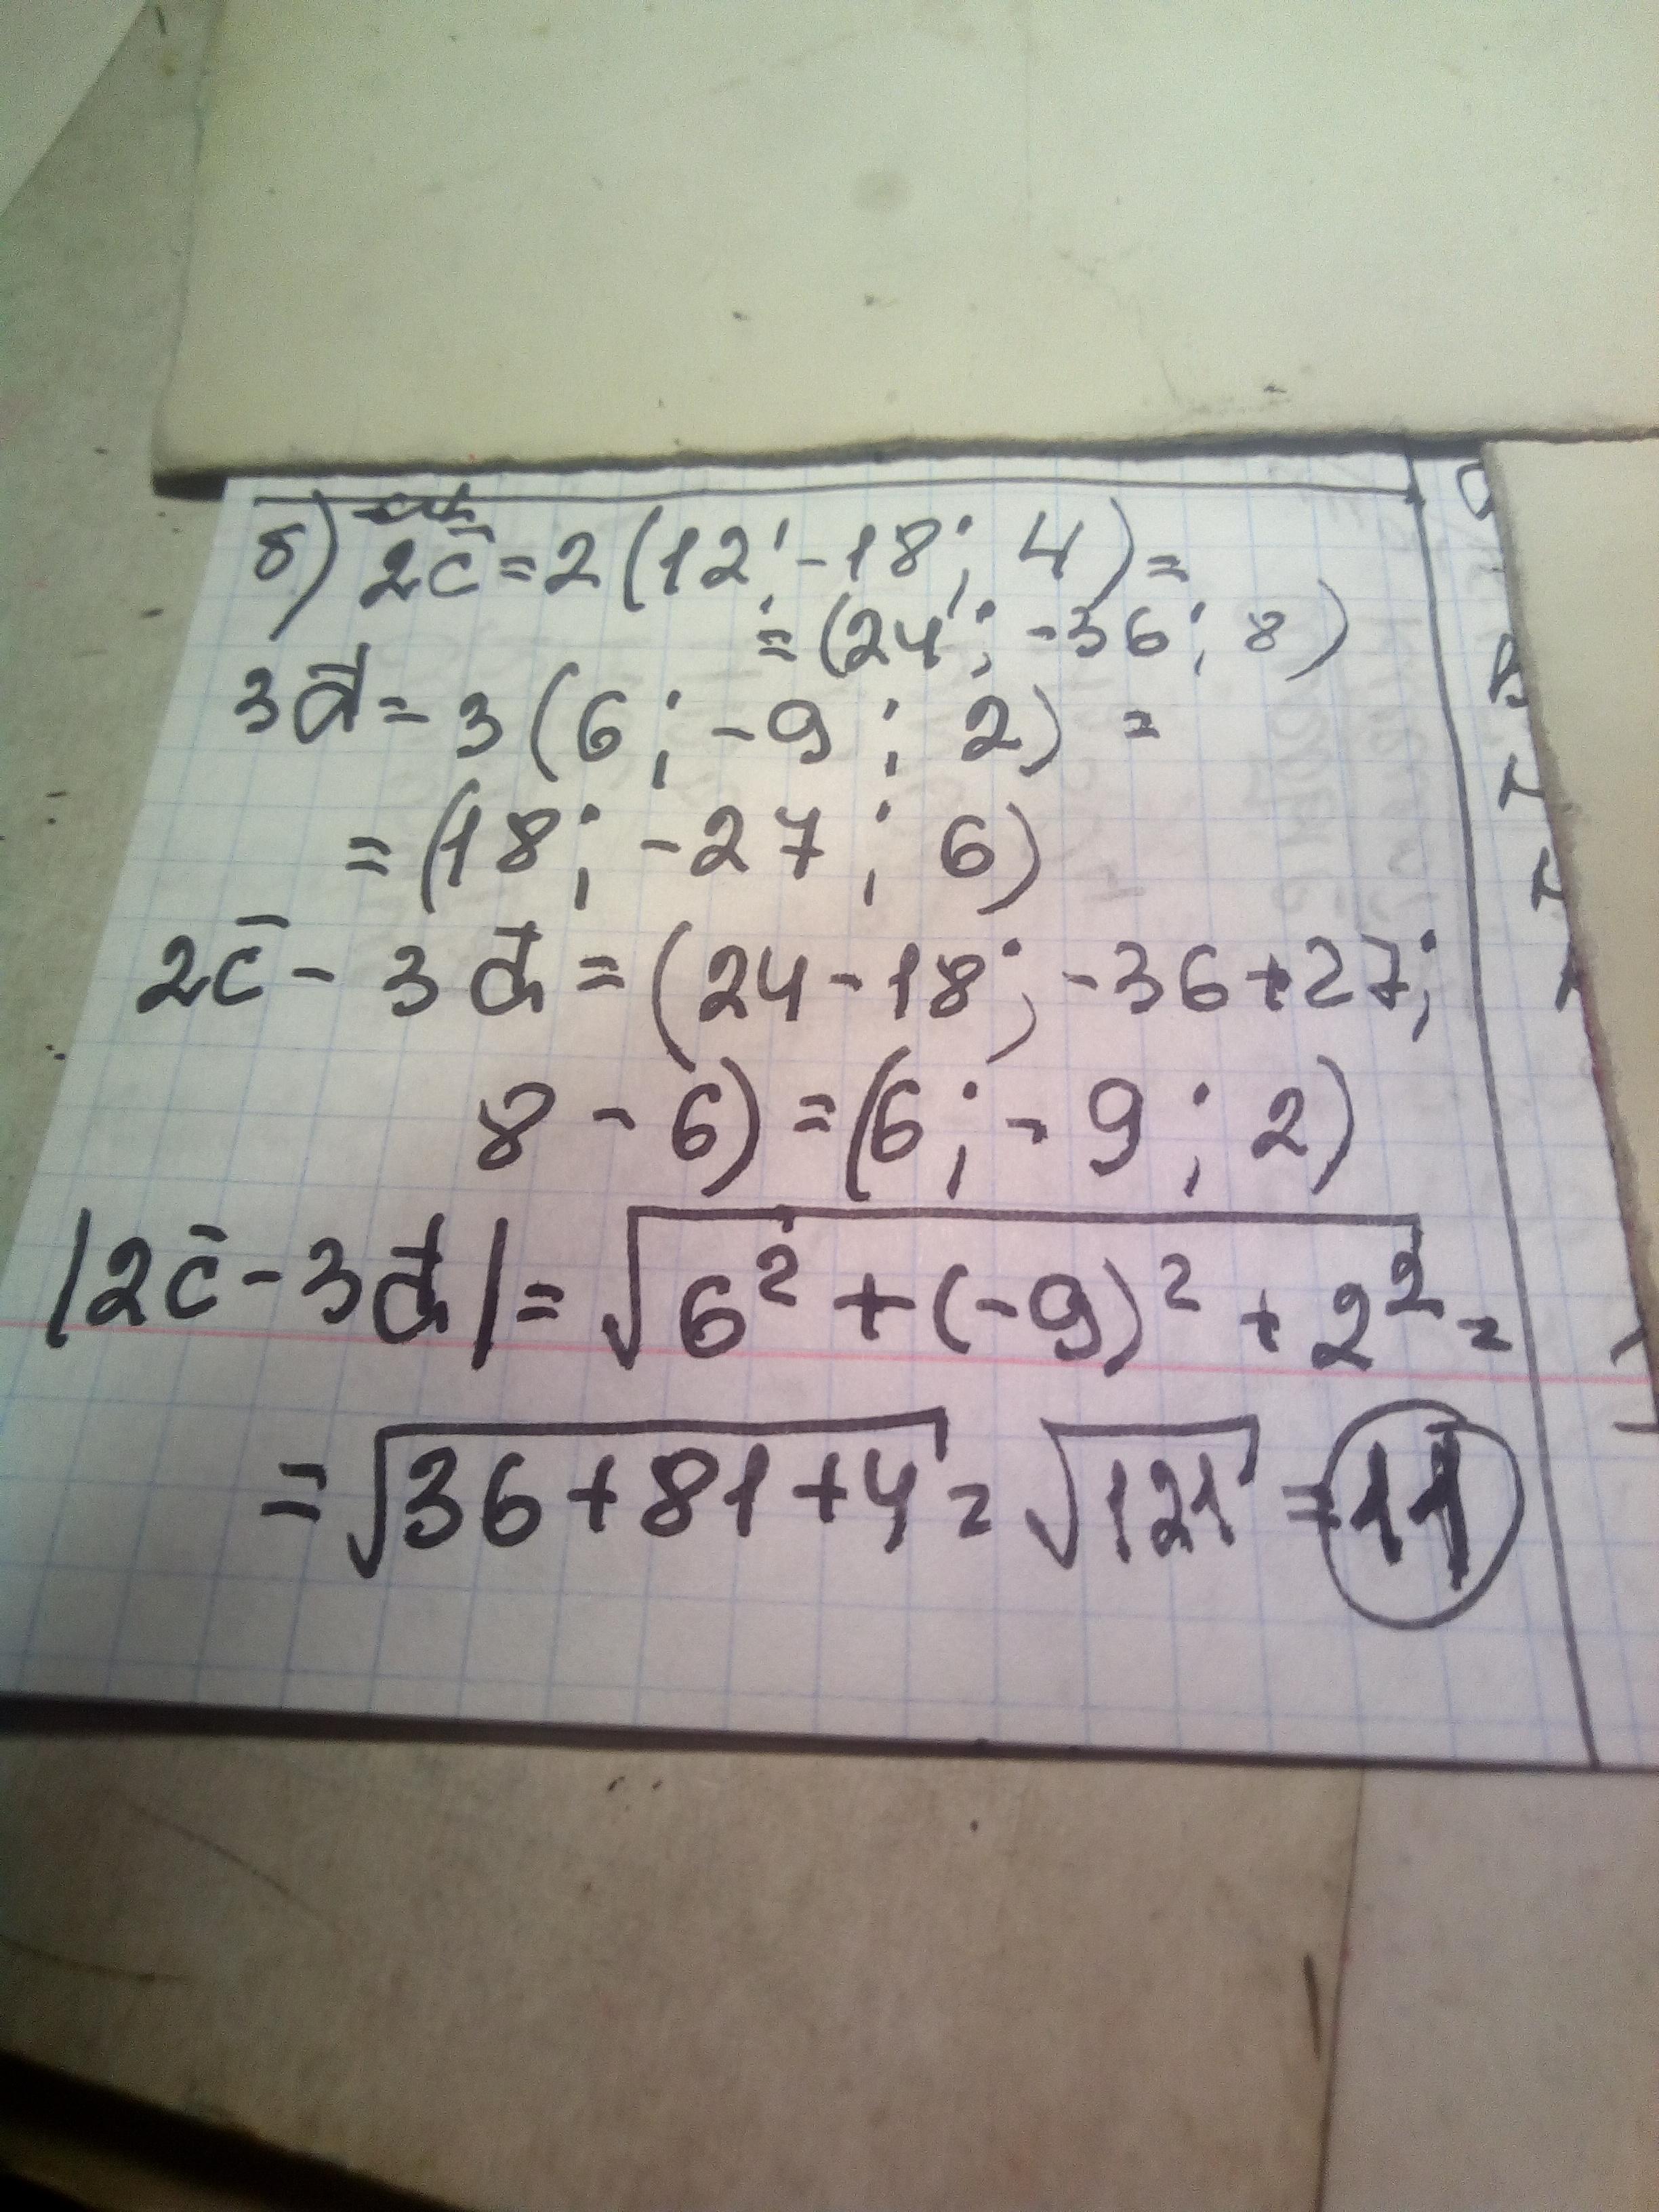 б) 2c̄ = 2(12; -18; 4) =
= (24; -36; 8)
3d̄ = 3(6; -9; 2) =
= (18; -27; 6)
2c̄ - 3d̄ = (24-18; -36+27;
8 - 6) = (6; -9; 2)
|2c̄ - 3d̄| = √6² + (-9)² + 2² =
= √36+81+4 = √121 = 11